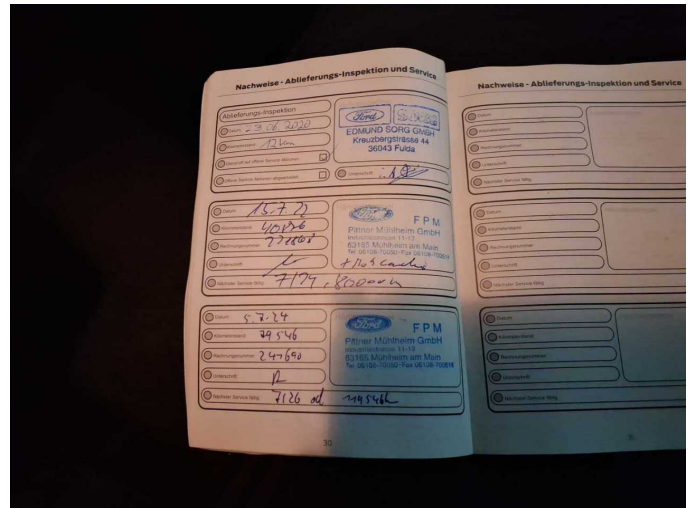 Nachweise - Ablieferungs-Inspektion und Service
Ablieferungs-Inspektion
Datum - 3.06.2020
Kilometerstand 12 km
Überprüft auf offene Service Aktionen
Offene Service Aktionen abgearbeitet
Ford
EDMUND SORG GMBH
Kreuzbergstrasse 44
36043 Fulda
Unterschrift
Datum 15.7.22
Kilometerstand
Rechnungsnummer
Unterschrift
Nächster Service fällig 7/24, 80000
Ford FPM
Pittner Mühlheim GmbH
Industriestrasse 11-13
63165 Mühlheim am Main
Tel. 06108-70050 Fax 06108-700519
Datum 5.7.24
Kilometerstand 79546
Rechnungsnummer 247690
Unterschrift
Nächster Service fällig 7/26 od 119546
Ford FPM
Pittner Mühlheim GmbH
Industriestrasse 11-13
63165 Mühlheim am Main
Tel. 06108-70050 Fax 06108-700519
30
Nachweise - Ablieferungs-Inspektion und Service
Datum
Kilometerstand
Rechnungsnummer
Unterschrift
Nächster Service fällig
Datum
Kilometerstand
Rechnungsnummer
Unterschrift
Nächster Service fällig
Datum
Kilometerstand
Rechnungsnummer
Unterschrift
Nächster Service fällig